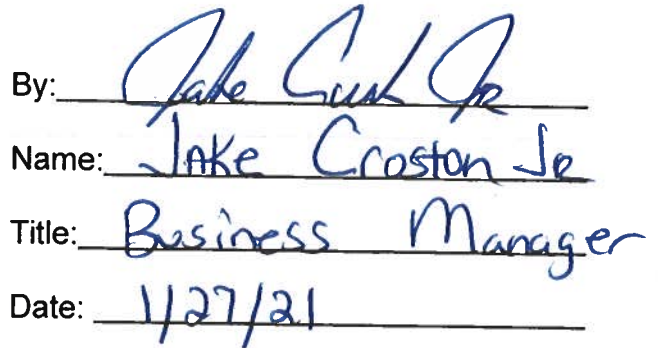 By: Jake Croston Jr
Name: Jake Croston Jr
Title: Business Manager
Date: 1/27/21